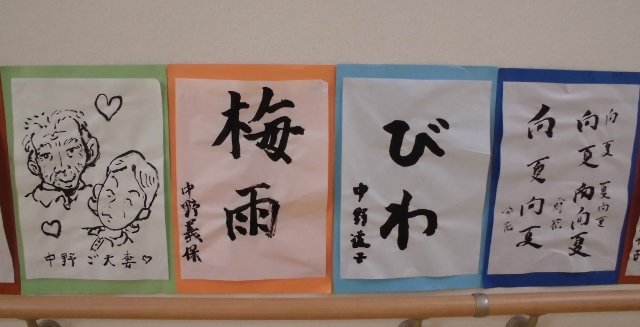 中野ご夫妻
梅雨
中野義保
びわ
中野達子
向夏
向夏
向夏
向夏
夏向夏
向夏